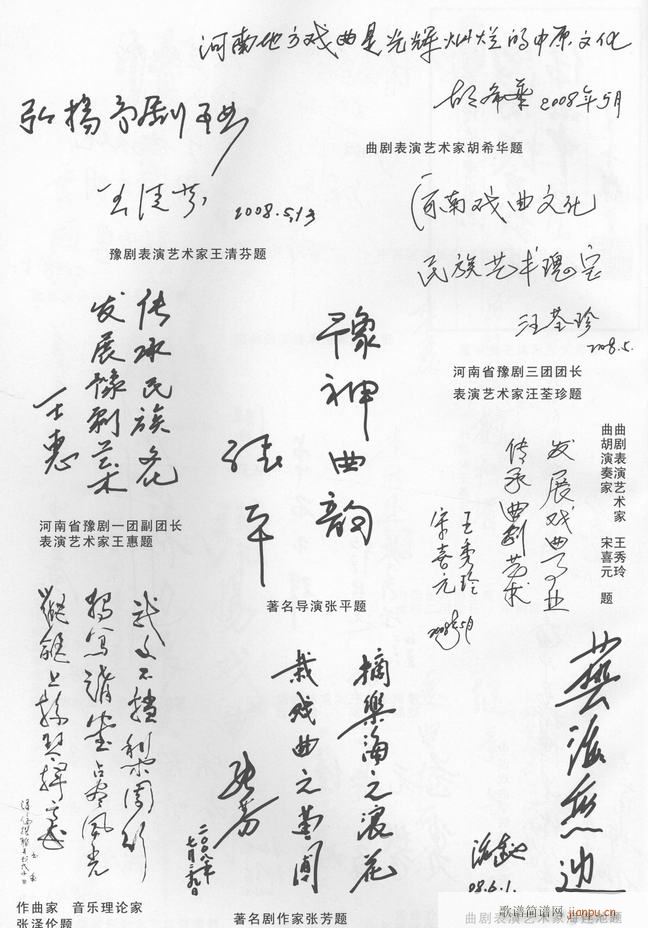 河南地方戏曲是光辉灿烂的中原文化
胡希华 2008年5月
曲剧表演艺术家胡希华题
弘扬豫剧
王清芬 2008.5.13
豫剧表演艺术家王清芬题
河南戏曲文化
民族艺术瑰宝
汪荃珍
2008.5.
河南省豫剧三团团长
表演艺术家汪荃珍题
传承民族文化
发展豫剧艺术
王惠
河南省豫剧一团副团长
表演艺术家王惠题
豫神曲韵
张平
著名导演张平题
发展戏曲事业
传承曲剧艺术
王秀玲
宋喜元
2008年5月
曲剧表演艺术家 王秀玲
曲胡演奏家 宋喜元 题
作曲家 音乐理论家
张泽伦题
摘乐海之浪花
栽戏曲之苗圃
张芳
二〇〇八年
七月二九日
著名剧作家张芳题
艺海无边
海连池
08.6.1.
曲剧表演艺术家海连池题
歌谱简谱网
jianpu.cn